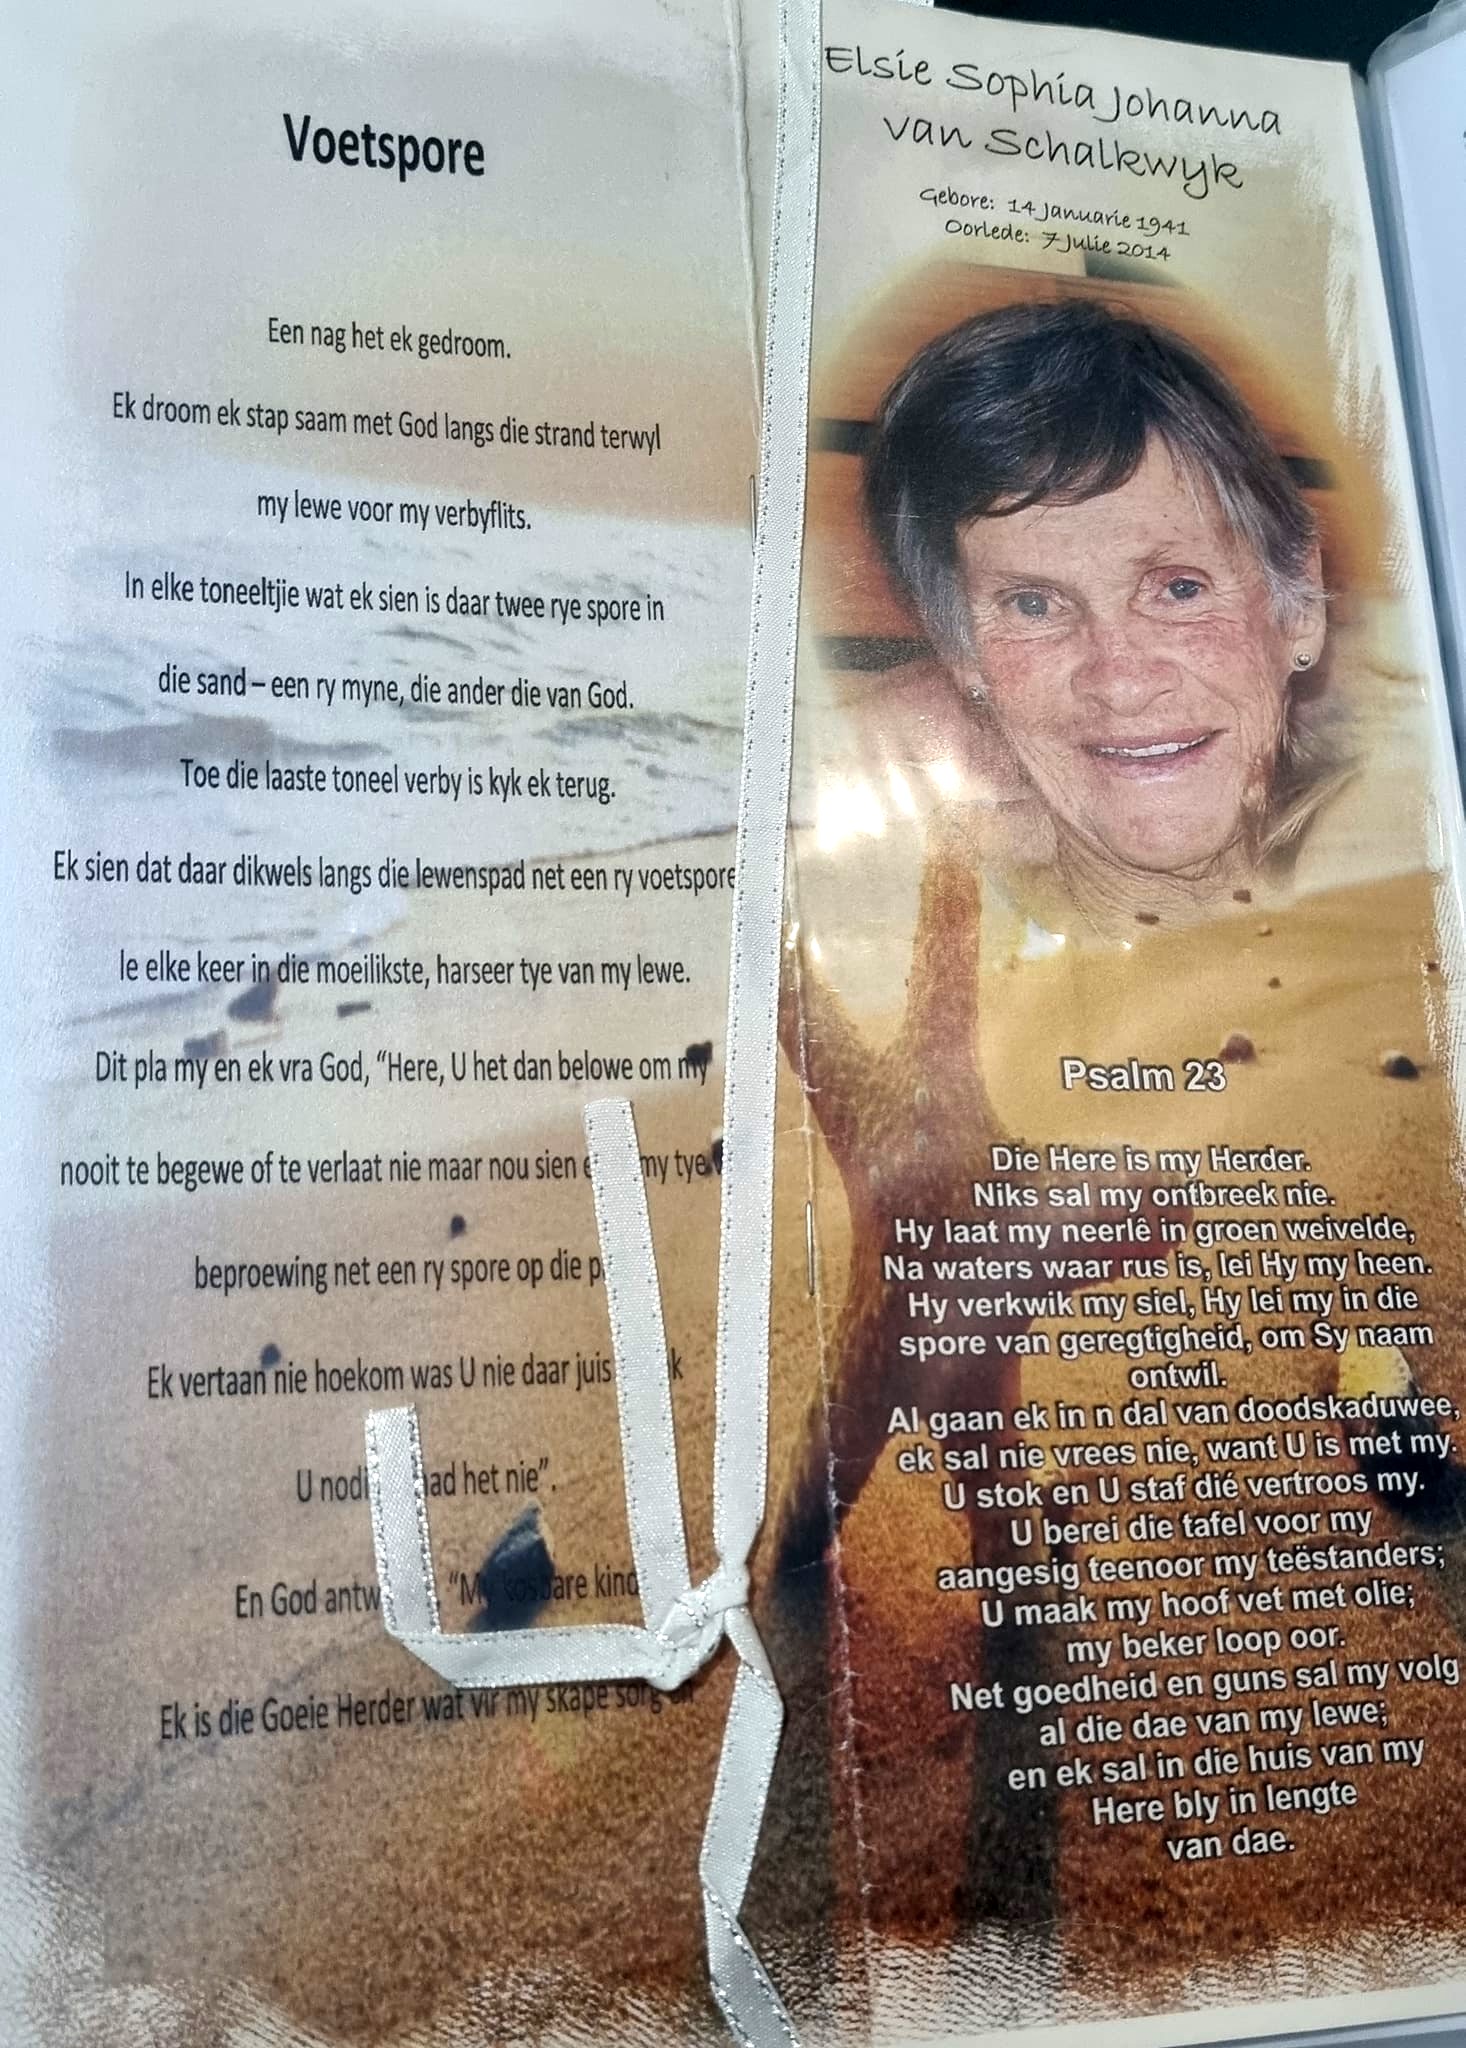 Voetspore
Een nag het ek gedroom.
Ek droom ek stap saam met God langs die strand terwyl
my lewe voor my verbyflits.
In elke toneeltjie wat ek sien is daar twee rye spore in
die sand – een ry myne, die ander die van God.
Toe die laaste toneel verby is kyk ek terug.
Ek sien dat daar dikwels langs die lewenspad net een ry voetspore
le elke keer in die moeilikste, harseer tye van my lewe.
Dit pla my en ek vra God, “Here, U het dan belowe om my
nooit te begewe of te verlaat nie maar nou sien my tye
beproewing net een ry spore op die
Ek vertaan nie hoekom was U nie daar juis
U het nie”.
En God “My kosbare kind
Ek is die Goeie Herder wat vir my skape sorg
Elsie Sophia Johanna
van Schalkwyk
Gebore: 14 Januarie 1941
Oorlede: 7 Julie 2014
Psalm 23
Die Here is my Herder.
Niks sal my ontbreek nie.
Hy laat my neerlê in groen weivelde,
Na waters waar rus is, lei Hy my heen.
Hy verkwik my siel, Hy lei my in die
spore van geregtigheid, om Sy naam
ontwil.
Al gaan ek in n dal van doodskaduwee,
ek sal nie vrees nie, want U is met my.
U stok en U staf dié vertroos my.
U berei die tafel voor my
aangesig teenoor my teëstanders;
U maak my hoof vet met olie;
my beker loop oor.
Net goedheid en guns sal my volg
al die dae van my lewe;
en ek sal in die huis van my
Here bly in lengte
van dae.